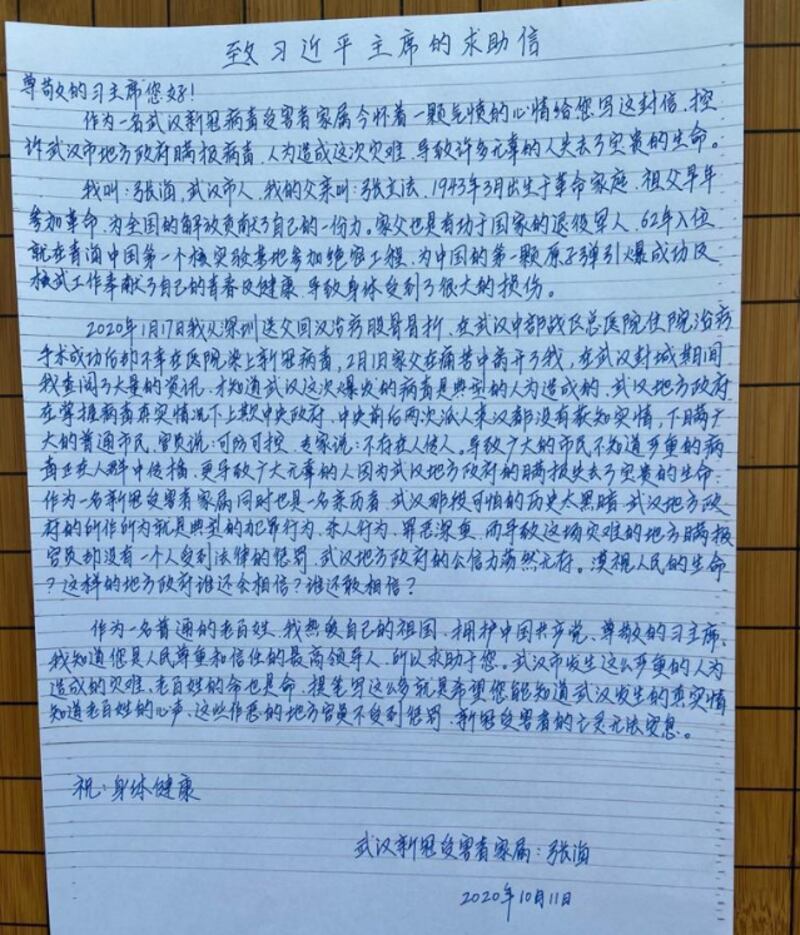 致习近平主席的求助信
尊敬的习主席您好!
作为一名武汉新冠病毒受害者家属今怀着一颗气愤的心情给您写这封信、控
诉武汉市地方政府瞒报病毒、人为造成这次灾难、导致许多无辜的人失去了宝贵的生命。
我叫:张海、武汉市人、我的父亲叫:张立法、1943年3月出生于革命家庭、祖父早年
参加革命、为全国的解放贡献了自己的一份力。家父也是有功于国家的退役军人、62年入伍
就在青海中国第一个核实验基地参加绝密工程、为中国的第一颗原子弹引爆成功及
核试工作奉献了自己的青春及健康、导致身体受到了很大的损伤。
2020年1月17日我从深圳送父回汉治疗股骨骨折、在武汉中部战区总医院住院治疗
手术成功后却不幸在医院染上新冠病毒,2月1日家父在痛苦中离开了我、在武汉封城期间
我查阅了大量的资讯、才知道武汉这次爆发的病毒是典型的人为造成的、武汉地方政府
在掌握病毒真实情况下上欺中央政府、中央前后两次派人来汉都没有获知实情、下瞒广
大的普通市民、官员说:可防可控、专家说:不存在人传人。导致广大的市民不知道严重的病
毒正在人群中传播、更导致广大无辜的人因为武汉地方政府的瞒报失去了宝贵的生命.
作为一名新冠受害者家属同时也是一名亲历者、武汉那段可怕的历史太黑暗、武汉地方政
府的所作所为就是典型的犯罪行为、杀人行为、罪恶深重、而导致这场灾难的地方瞒报
官员却没有一个人受到法律的惩罚、武汉地方政府的公信力荡然无存。漠视人民的生命
?这样的地方政府谁还会相信?谁还敢相信?
作为一名普通的老百姓、我热爱自己的祖国、拥护中国共产党、尊敬的习主席、
我知道您是人民尊重和信任的最高领导人、所以求助于您。武汉市发生这么严重的人为
造成的灾难、老百姓的命也是命、提笔写这么多就是希望您能知道武汉发生的真实情
知道老百姓的心声、这些作恶的地方官员不受到惩罚、新冠受害者的亡灵无法安息。
祝:身体健康
武汉新冠受害者家属:张海
2020年10月11日